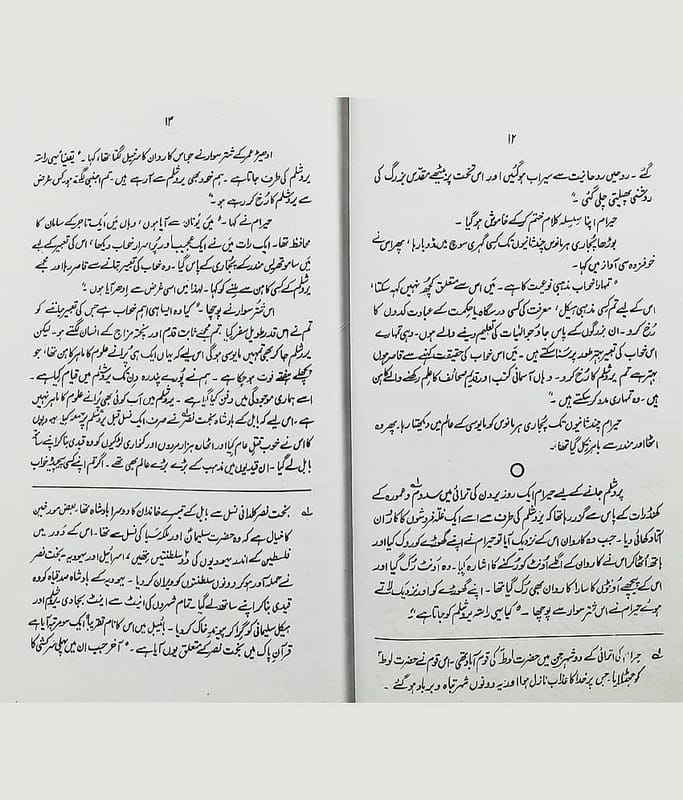 ۱۲
گئے ۔ روحیں روحانیت سے سیراب ہوگئیں اور اس تخت پر بیٹھے مقدس بزرگ کی
روشنی پھیلتی چلی گئی ۔"
حیرام اپنا سلسلہ کلام ختم کرکے خاموش ہوگیا ۔
بوڑھا پجاری ہرمانوس چند ثانیوں تک کسی گہری سوچ میں ڈوبا رہا ، پھر اس نے
خوفزدہ سی آواز میں کہا ۔
" تمہارا خواب مذہبی نوعیت کا ہے ۔ میں اس سے متعلق کچھ نہیں کہہ سکتا ،
اس کے لیے تم کسی مذہبی ہیکل ، معرفت کی کسی درسگاہ یا حکمت کے عبادت کدوں کا
رُخ کرو ۔ ان بزرگوں کے پاس جاؤ جو الہٰیات کی تعلیم دینے والے ہوں ۔ وہی تمہارے
اس خواب کی تعبیر بہتر طور پر بتا سکتے ہیں ۔ میں اس خواب کی حقیقت کہنے سے قاصر ہوں
بہتر ہے تم یروشلم کا رُخ کرو ۔ وہاں آسمانی کتب اور قدیم صحائف کا علم رکھنے والے کاہن
ہیں ۔ وہ تمہاری مدد کر سکتے ہیں ۔"
حیرام چند ثانیوں تک پجاری ہرمانوس کو مایوسی کے عالم میں دیکھتا رہا ۔ پھر وہ
اٹھا اور مندر سے باہر نکل گیا تھا ۔
یروشلم جانے کے لیے حیرام ایک روز یردن کی ترائی میں سدوم و عمورہ کے
کھنڈرات کے پاس سے گزر رہا تھا کہ یروشلم کی طرف سے اسے ایک غلہ فروشوں کا کارواں
آتا دکھائی دیا ۔ جب وہ کارواں اس کے نزدیک آیا تو حیرام نے اپنے گھوڑے کو روک لیا اور
ہاتھ اٹھا کر اس نے کارواں کے اگلے اُونٹ کو رُکنے کا اشارہ کیا ۔ وہ اُونٹ رُک گیا اور
اس کے پیچھے اُونٹوں کا سارا کارواں بھی رُک گیا تھا ۔ اپنے گھوڑے کو اور نزدیک لاتے
ہوئے حیرام نے اس شتر سوار سے پوچھا ۔ " کیا یہی راستہ یروشلم کو جاتا ہے "
کی ترائی کے دو شہر جن میں حضرت لوطؑ کی قوم آباد تھی ۔ اس قوم نے حضرت لوطؑ
کو جھٹلایا جس پر خدا کا عذاب نازل ہوا اور یہ دونوں شہر تباہ و برباد ہوگئے ۔
۱۳
ادھیڑ عمر کے شتر سوار نے جو اس کارواں کا سرخیل لگتا تھا ، کہا ۔ " یقیناً یہی راستہ
یروشلم کی طرف جاتا ہے ۔ ہم خود بھی یروشلم سے آ رہے ہیں ۔ تم اجنبی لگتے ہو کس غرض
سے یروشلم کا رُخ کر رہے ہو ۔"
حیرام نے کہا ۔ " میں یونان سے آیا ہوں ، وہاں میں ایک تاجر کے سامان کا
محافظ تھا ۔ ایک رات میں نے ایک عجیب اور پُر اسرار خواب دیکھا ، اس کی تعبیر کے لیے
میں مندر کے پجاری کے پاس گیا ۔ وہ خواب کی تعبیر بتانے سے قاصر رہا اور مجھے
یروشلم کے کسی کاہن سے ملنے کو کہا ۔ لہٰذا میں اسی غرض سے ادھر آیا ہوں ۔"
اس شتر سوار نے پوچھا ۔ " کیا وہ ایسا ہی اہم خواب ہے جس کی تعبیر جاننے کو
تم نے اس قدر طویل سفر کیا ۔ تم مجھے ثابت قدم اور پختہ مزاج کے انسان لگتے ہو ۔ لیکن
یروشلم جا کر بھی تمہیں مایوسی ہوگی اس لیے کہ یہاں ایک ہی پرانے علوم کا ماہر کاہن تھا ، جو
پچھلے ہفتے فوت ہوچکا ہے ۔ ہم نے پورے پندرہ دن تک یروشلم میں قیام کیا ہے ۔
اسے ہماری موجودگی میں دفن کیا گیا ہے ۔ یروشلم میں اب کوئی بھی پرانے علوم کا ماہر نہیں
ہے ۔ اس لیے کہ بابل کے بادشاہ بخت نصر نے صرف ایک نسل قبل یروشلم پر حملہ کیا ۔ یہودیوں
کا اس نے خوب قتل عام کیا اور اٹھارہ ہزار مردوں اور کنواری لڑکیوں کو وہ قیدی بنا کر اپنے ساتھ
بابل لے گیا ۔ ان قیدیوں میں مذہب کے بڑے بڑے عالم بھی تھے ۔ اگر تم اپنے کسی پیچیدہ خواب
بخت نصر کلدانی نسل سے بابل کے تیسرے خاندان کا دوسرا بادشاہ تھا ۔ بعض مورخین
کا خیال ہے کہ وہ حضرت سلیمانؑ اور ملکہ سبا کی نسل سے تھا ۔ اس کے دَور میں
فلسطین کے اندر یہودیوں کی دو سلطنتیں تھیں ، اسرائیل اور یہودیہ بخت نصر
نے حملہ آور ہو کر دونوں سلطنتوں کو ویران کر دیا ۔ یہودیہ کے بادشاہ صدقیاہ کو وہ
قیدی بنا کر اپنے ساتھ لے گیا ۔ تمام شہروں کی اینٹ سے اینٹ بجا دی یروشلم اور
ہیکل سلیمانی کو گرا کر پیوند خاک کر دیا ۔ بائبل میں اس کا نام تقریباً ایک سو مرتبہ آیا ہے
قرآن پاک میں بخت نصر کے متعلق یوں آیا ہے ۔ " آخر جب ان میں پہلی سرکشی کا